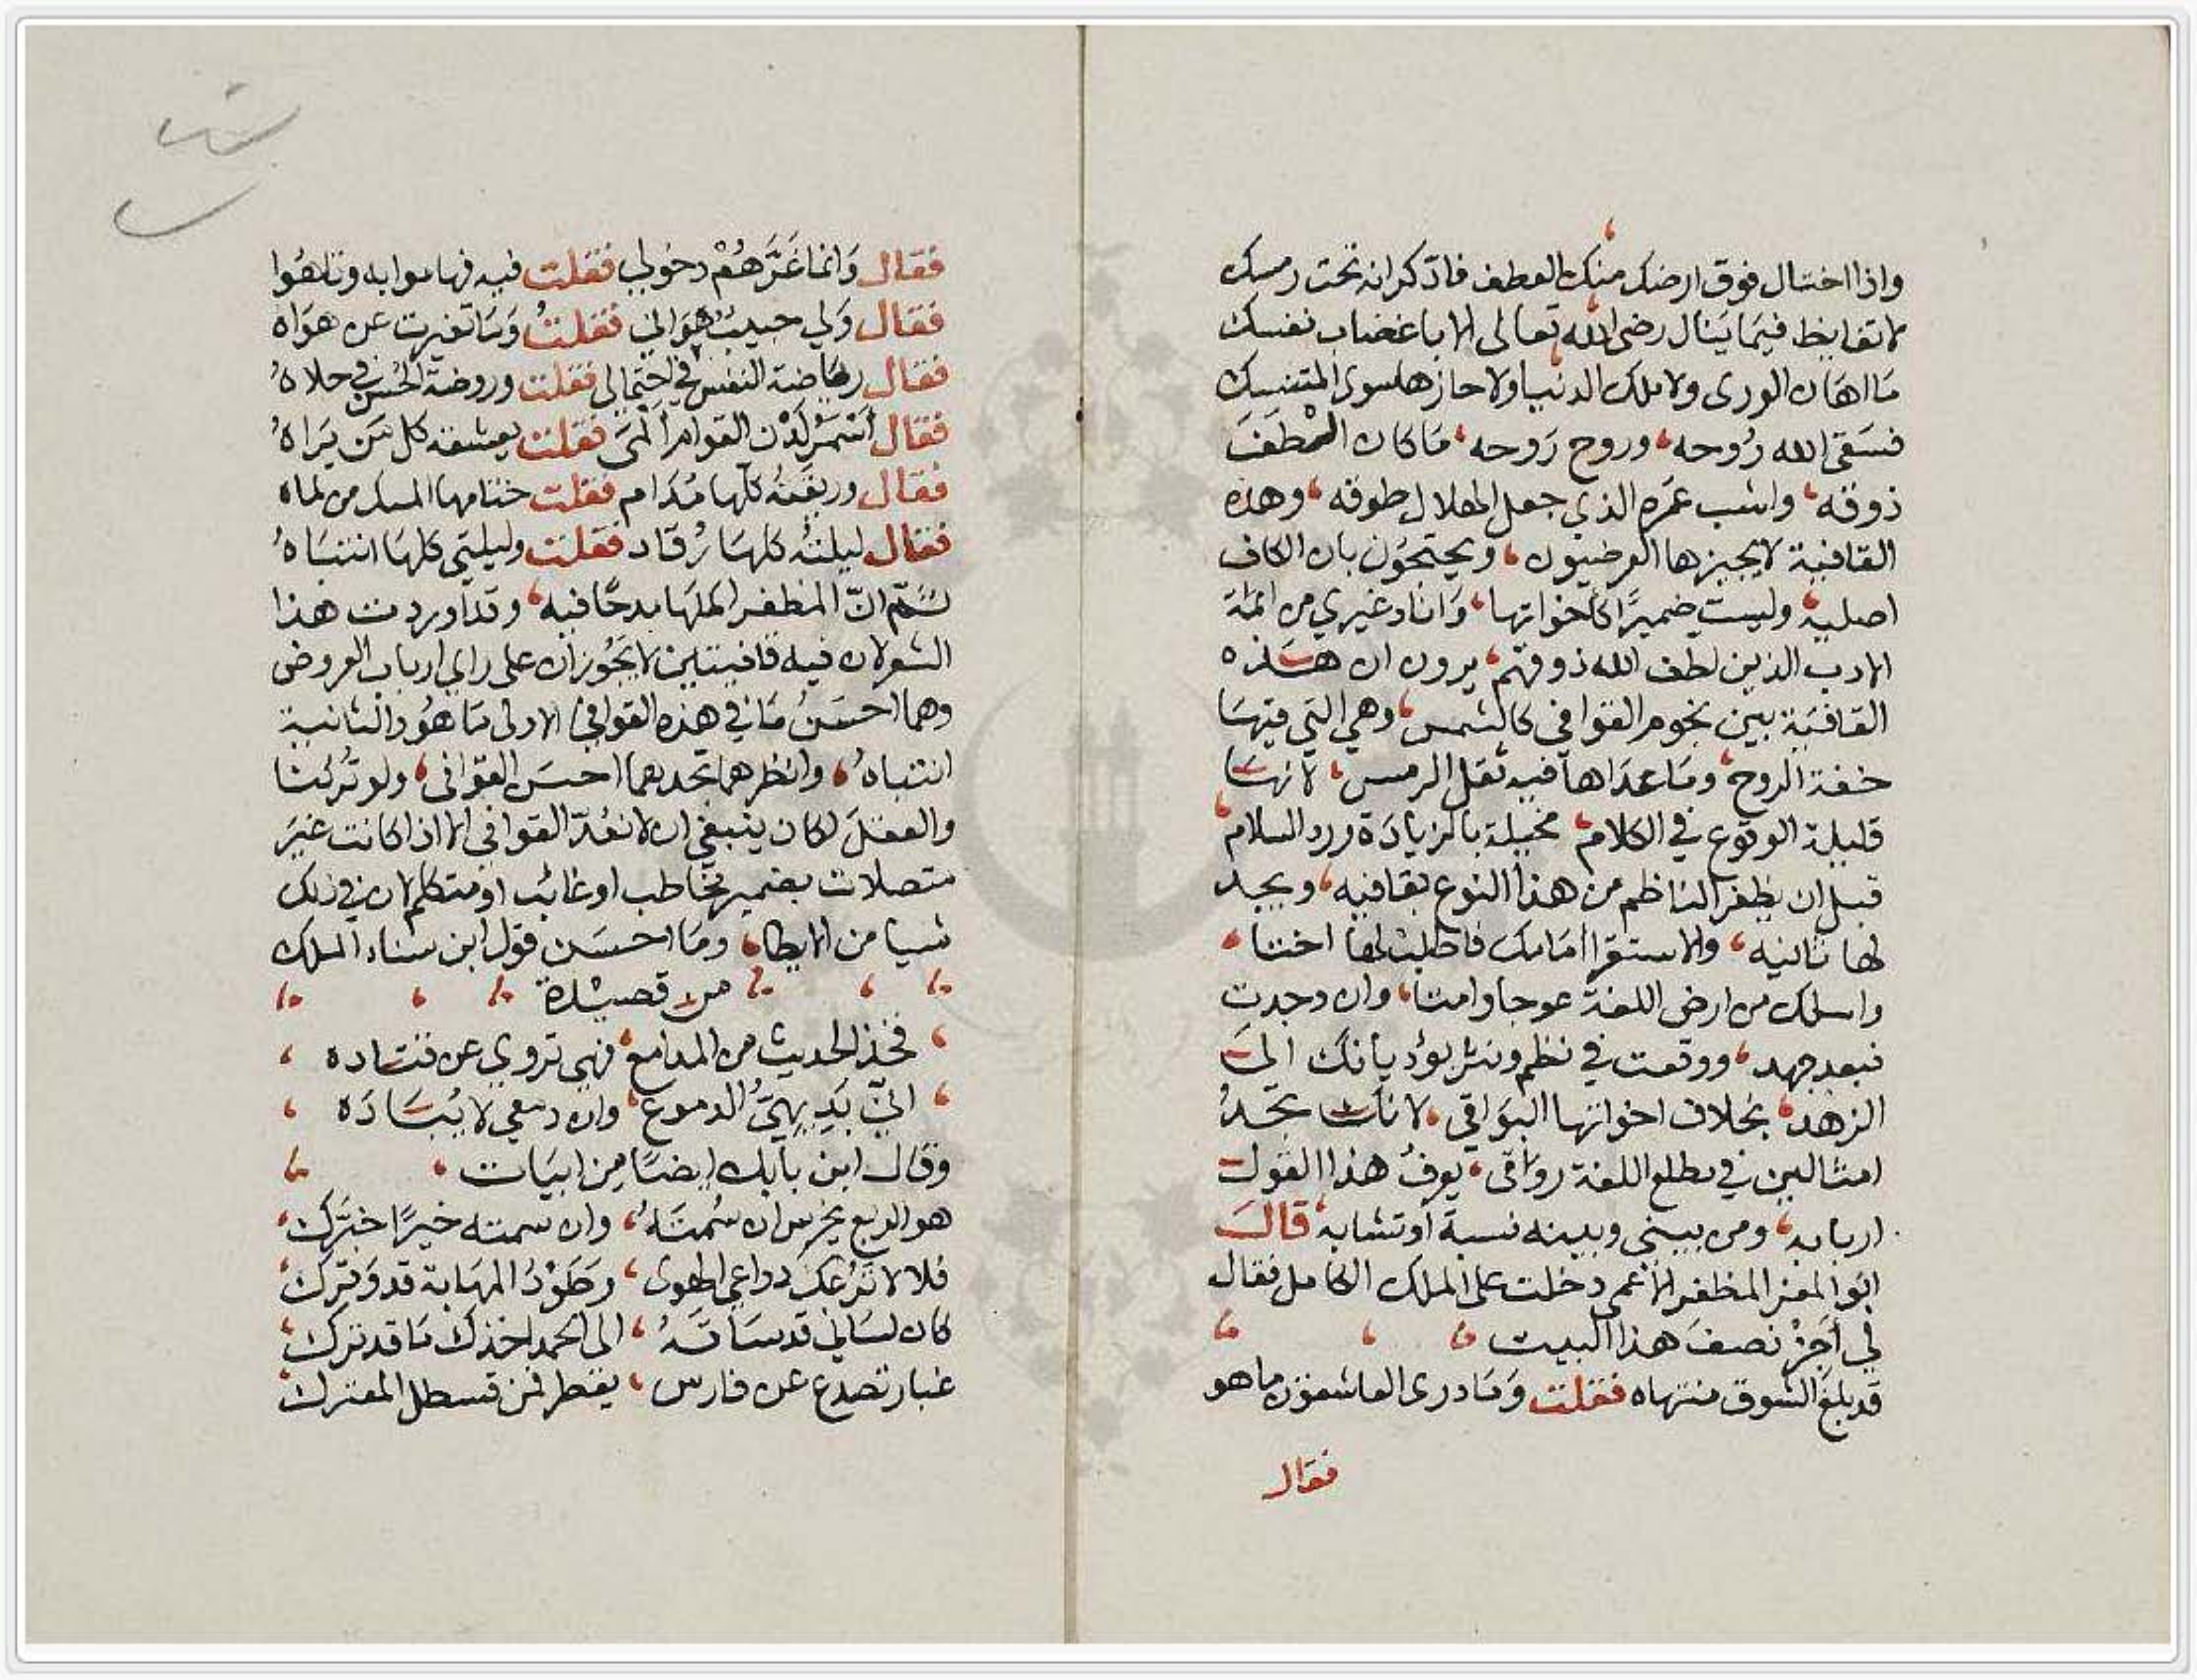 واذا اختال فوق ارضك منك العطف فادكر انه تحت رمسك
لا تغابط فيما ينال رضى الله تعالى الا باغضاب نفسك
ما اهان الورى ولا ملك الدنيا ولا حازها سوى المتنسك
فسقى الله رُوحه، وروح رَوحه، ما كان الطفَ
ذوقه، واشب عمره الذي جعل الهلال طوقه، وهذه
القافية لا يجيزها العرضيون، ويحتجون بان الكاف
اصلية، وليست ضميرًا كاخواتها، وَانا وغيري من ائمة
الادب الذين لطف الله ذوقهم، يرون ان هذه
القافية بين نجوم القوافي كالشمس، وهي التي فيها
خفة الروح، وما عداها فيه ثقل الرمس، لانها
قليلة الوقوع في الكلام، مخيلة بالزيادة ورد السلام،
قبل ان يظفر الناظم من هذا النوع بقافيه، ويجد
لها ثانيه، والاستقرا امامك فاطلب لها اختا،
واسلك من ارض اللغة عوجا وامتا، وان وجدت
فبعد جهد، ووقعت في نظم ونثر يؤديانك الى
الزهد، بخلاف اخواتها البواقي، لانك تجدُ
امثالهن في مطلع اللغة رواقى، يعرفُ هذا القول
اربابه، ومن بيني وبينه نسبة أو تشابه، قال
ابوا لمعز المظفر الاعمى دخلت على الملك الكامل فقال
لي أجِزْ نصف هذا البيت
قد بلغ الشوق منتهاه فقلت وَمَا درى العاشقون ما هو
فقال
فقال وَانما غَرَّهُمْ دخولي فقلت فيه فهاموا به وتاهُوا
فقال وَلي حبيبٌ هواني فقلتُ وَمَا تغيرت عن هوَاه
فقال رياضة النفس في احتمالي فقلت وروضة الحُسن في حلاهُ
فقال أسْمَرُ لَدْن القوام ألمَى فقلت يعشقه كل مَن يَراهُ
فقال وريقتُه كلّها مُدَام فقلت ختامها المسك من لماه
فقال ليلتُه كلها رُقاد فقلت وليلتي كلها انتبَاهُ
ثمّ انّ المظفر اكملها مدحًا فيه، وقد اوردت هذا
الشعر لان فيه قافيتين لا يَجُوزان على راي ارباب العروض
وهما احسَنُ مَا في هذه القوافي الاولى مَا هُو والثانية
انتباهُ، وانظرهما تجدهما احسَن القوافى، ولو تُركنا
والعقلَ لكان ينبغي ان لا نعُدّ القوافي الا اذا كانت غيَر
متصلات بضمير مخاطب او غائب او متكلم لان في ذلك
شيا من الايطا، ومَا احسَن قول ابن سناء الملك
من قصيدة
فخذ الحديث من المدامع، فهي تروي عن قتاده
انيّ بَدِيهِيُّ الدموع، وان دمعي لا يُبَادَه
وقال ابن بابك ايضًا من ابيات
هو الربع يخرس ان سُمتَهُ، وان سمته خيرًا خبَّرك
فلا لا تَرُعك دواعي الهوى، وَطَوْدُ المهَابة قد وَقرَك
كان لسَاني قد سَاقهُ، الى الحمد اخذك مَا قد ترك
غبار تصدع عن فارس، يقطر في قسطل المعترك